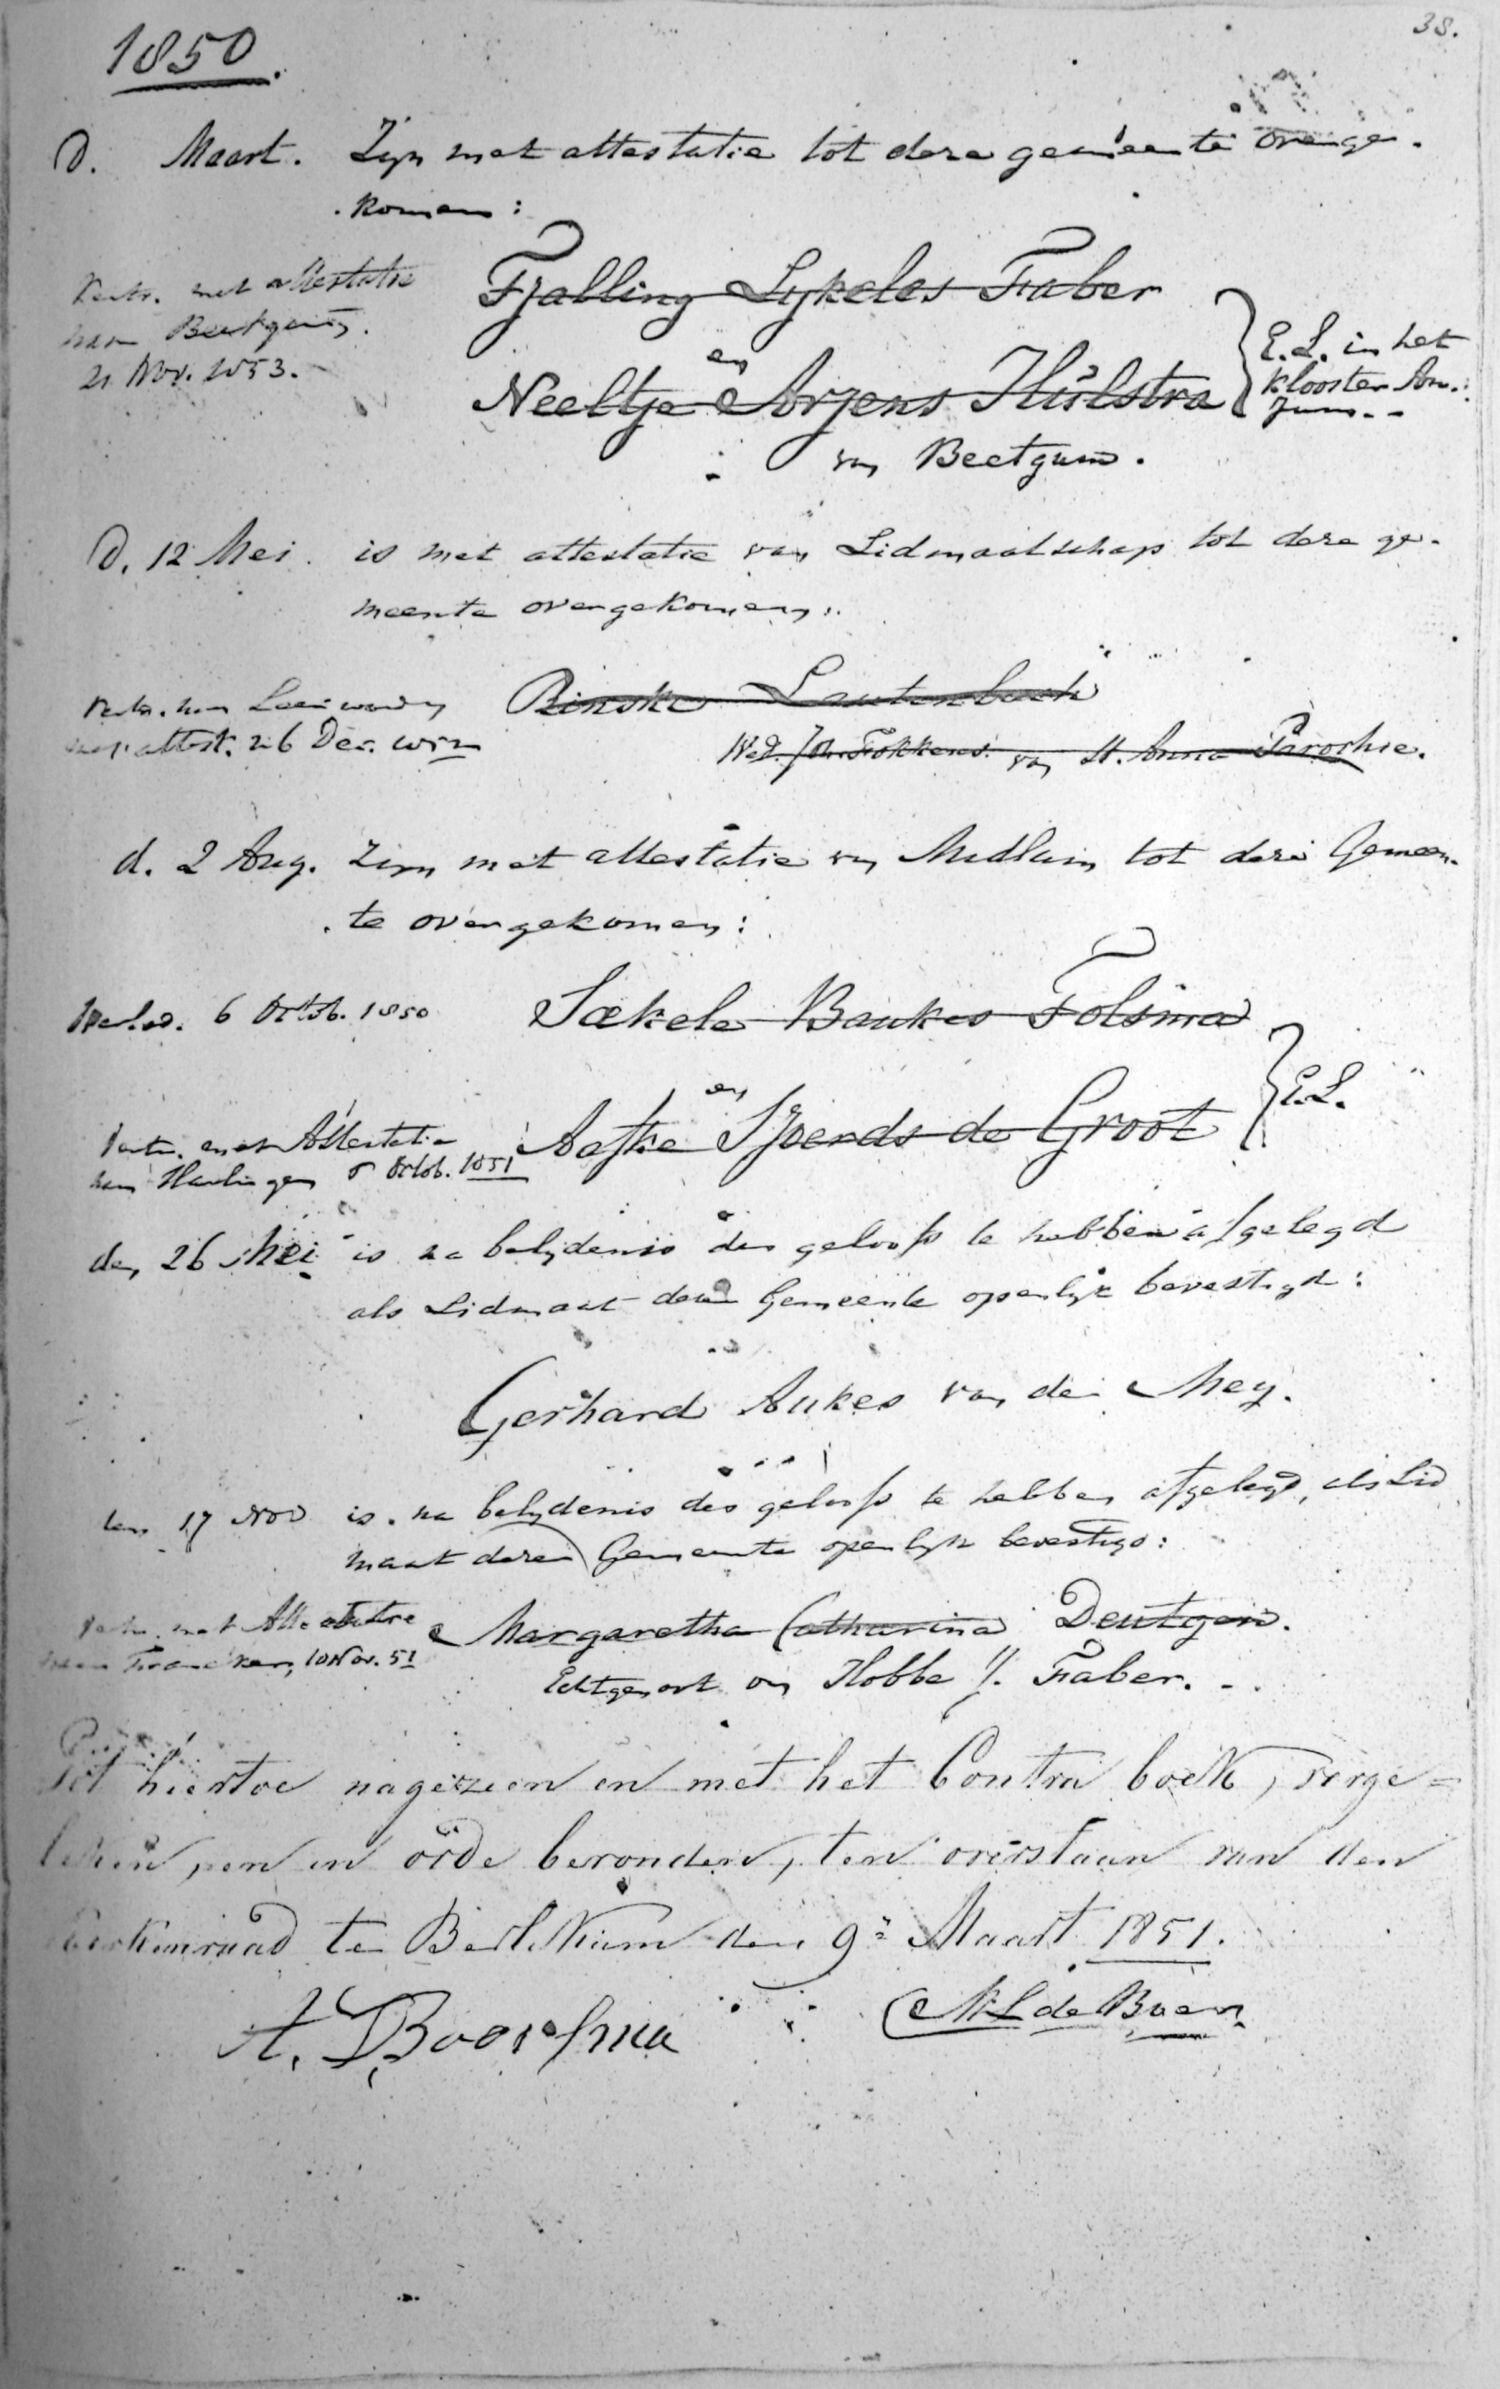 38.
1850.
D. Maart. Zijn met attestatie tot deze gemeente overge-
komen:
Vertr. met attestatie
naar Beetgum
21 Nov. 1853.
Tjalling Lykeles Faber
en
Neeltje Arjens Hulstra
E.L. in het
klooster An-
jum.
van Beetgum.
D. 12 Mei. is met attestatie van Lidmaatschap tot deze ge-
meente overgekomen:
Vertr. naar Leeuwarden
met attest. 26 Dec.
Rinske Lautenbach
Wed. Joh. Fokkens. van St. Anna Parochie.
d. 2 Aug. Zijn met attestatie van Midlum tot deze Gemeen-
te overgekomen:
Overled. 6 Octob. 1850
Sækele Baukes Tolsma
en
Aefke Sjoerds de Groot
E.L.
Vertr. met Attestatie
naar Harlingen 5 Octob. 1851
den 26 Mei is na belijdenis des geloofs te hebben afgelegd
als Lidmaat dezer Gemeente openlijk bevestigd:
Gerhard Aukes van der Meij.
den 17 Nov is na belydenis des geloofs te hebben afgelegd, als Lid
maat dezer Gemeente openlijk bevestigd:
Vertr. met Attestatie
naar Franeker, 10 Nov. 51
Margaretha Catharina Deutgen.
Echtgenoot van Hobbe IJ. Faber.
Tot hiertoe nagezien en met het Contra boek, verge=
leken, en in orde bevonden, ten overstaan van den
Kerkenraad te Berlikum den 9e Maart 1851.
A. Boorsma
N L de Boer